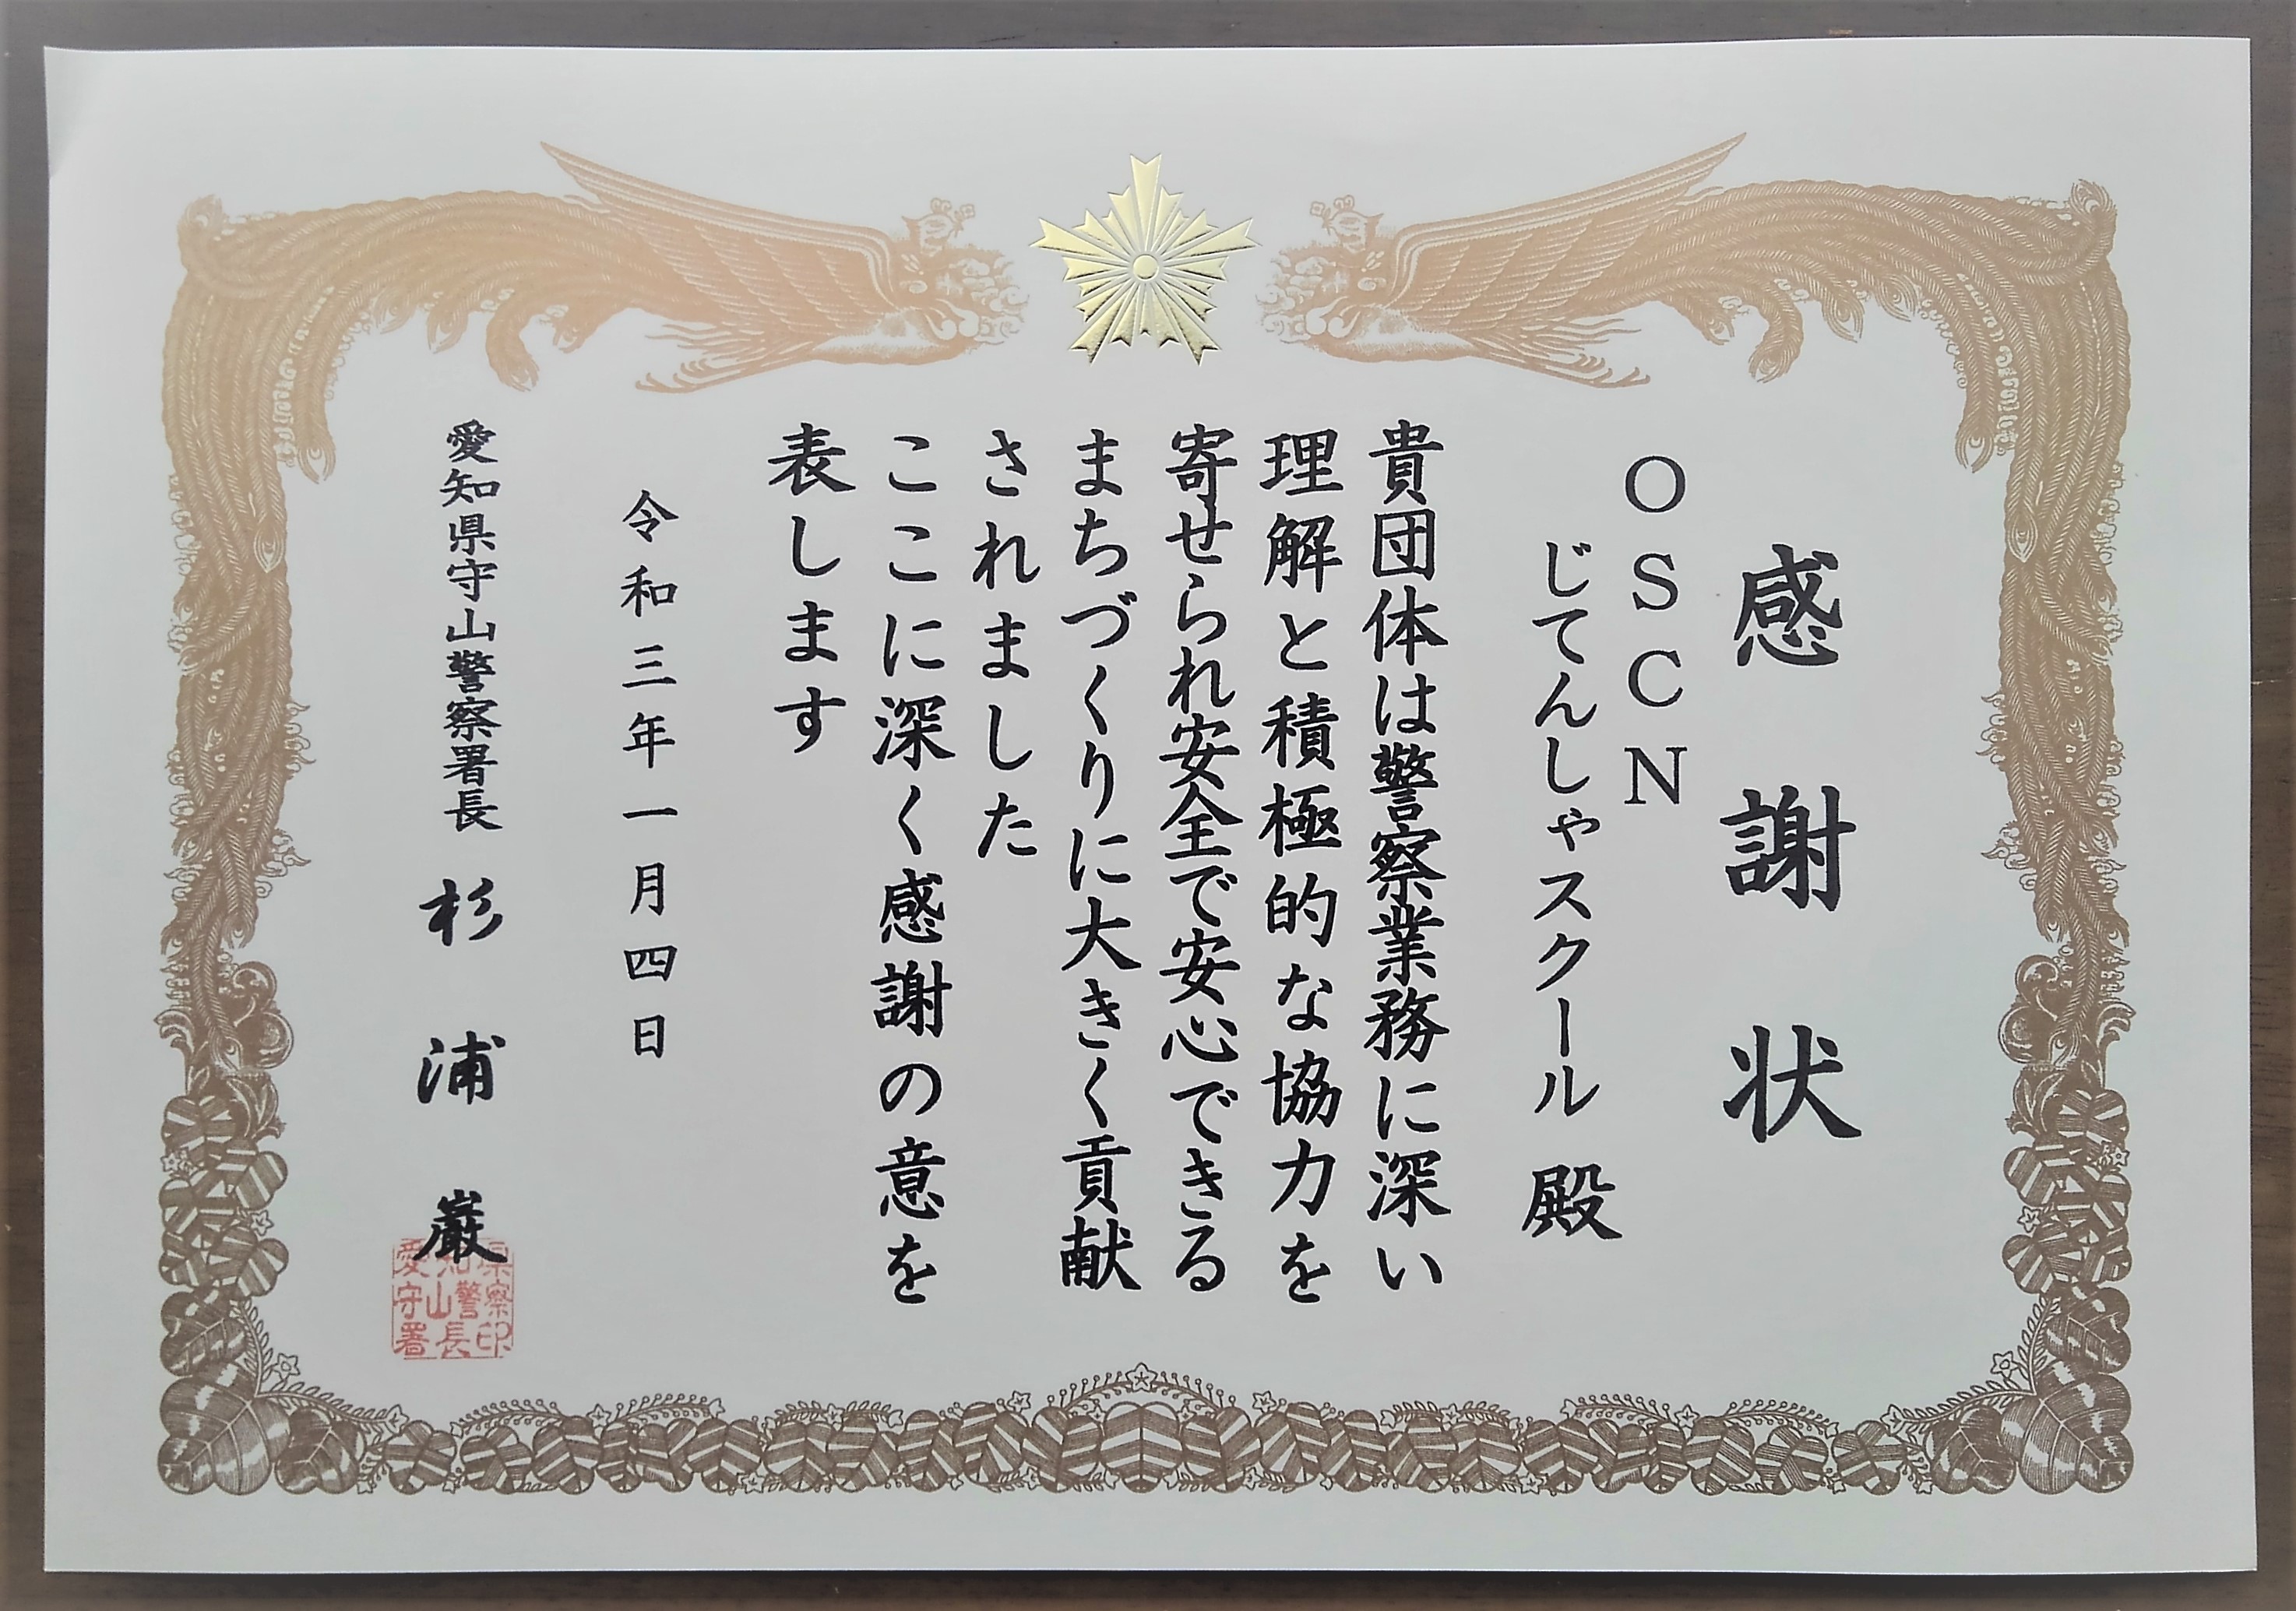 感謝状
OSCN
じてんしゃスクール 殿
貴団体は警察業務に深い
理解と積極的な協力を
寄せられ安全で安心できる
まちづくりに大きく貢献
されました
ここに深く感謝の意を
表します
令和三年一月四日
愛知県守山警察署長 杉浦巌
愛知県
守山警察
署長印